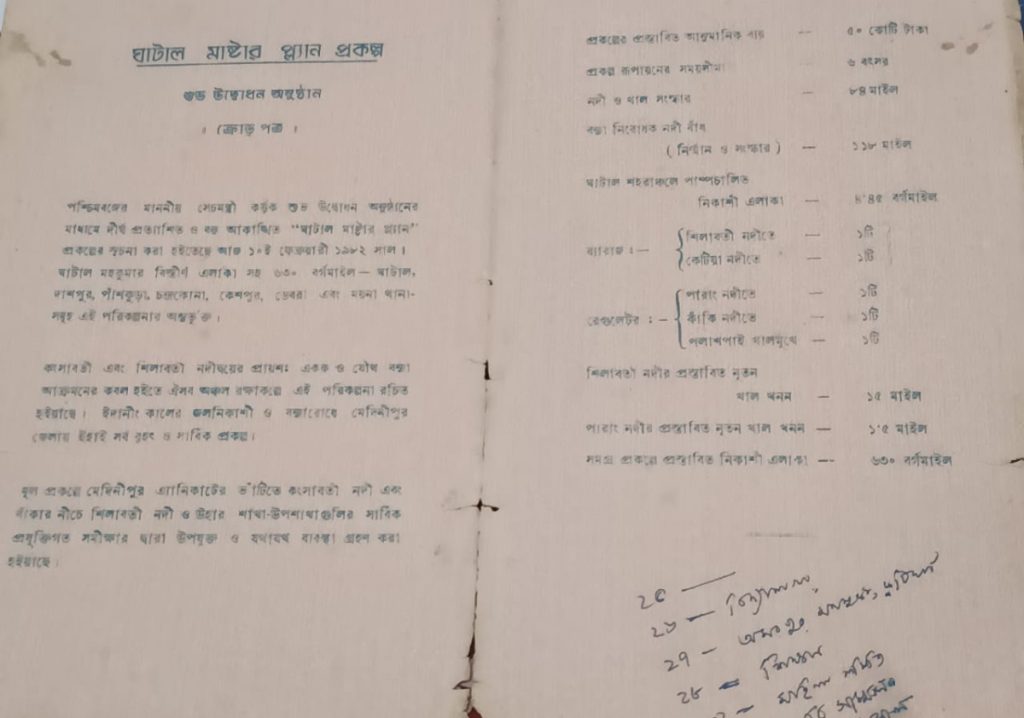 ঘাটাল মাষ্টার প্ল্যান প্রকল্প
শুভ উদ্বোধন অনুষ্ঠান
। ক্রোড় পত্র ।
পশ্চিমবঙ্গের মাননীয় সেচমন্ত্রী কর্তৃক শুভ উদ্বোধন অনুষ্ঠানের
মাধ্যমে দীর্ঘ প্রত্যাশিত ও বহু আকাঙ্খিত "ঘাটাল মাষ্টার প্ল্যান"
প্রকল্পের সূচনা করা হইতেছে আজ ১০ই ফেব্রুয়ারী ১৯৮২ সাল।
ঘাটাল মহকুমার বিস্তীর্ণ এলাকা সহ ৬৩০ বর্গমাইল — ঘাটাল,
দাশপুর, পাঁশকুড়া, চন্দ্রকোনা, কেশপুর, ডেবরা এবং ময়না থানা-
সমূহ এই পরিকল্পনার অন্তর্ভুক্ত।
কংসাবতী এবং শিলাবতী নদীদ্বয়ের প্রায়শঃ একক ও যৌথ বন্যা
আক্রমনের কবল হইতে ঐসব অঞ্চল রক্ষাকল্পে এই পরিকল্পনা রচিত
হইয়াছে। ইদানীং কালের জলনিকাশী ও বন্যারোধে মেদিনীপুর
জেলায় ইহাই সর্ব বৃহৎ ও সার্বিক প্রকল্প।
মূল প্রকল্পে মেদিনীপুর এ্যানিকাটের ভাঁটিতে কংসাবতী নদী এবং
বাঁকার নীচে শিলাবতী নদী ও উহার শাখা-উপশাখাগুলির সার্বিক
প্রযুক্তিগত সমীক্ষার দ্বারা উপযুক্ত ও যথাযথ ব্যবস্থা গ্রহণ করা
হইয়াছে।
প্রকল্পের প্রস্তাবিত আনুমানিক ব্যয় — ৫০ কোটি টাকা
প্রকল্প রূপায়নের সময়সীমা — ৬ বৎসর
নদী ও খাল সংস্কার — ৮৪ মাইল
বন্যা নিরোধক নদী বাঁধ
( নির্ম্মান ও সংস্কার ) — ১১৮ মাইল
ঘাটাল শহরাঞ্চলে পাম্পচালিত
নিকাশী এলাকা — ৪'৪৫ বর্গমাইল
ব্যারাজ : — শিলাবতী নদীতে — ১টি
কেটিয়া নদীতে — ১টি
রেগুলেটর : — পারাং নদীতে — ১টি
কাঁকি নদীতে — ১টি
পলাশপাই খালমুখে — ১টি
শিলাবতী নদীর প্রস্তাবিত নূতন
খাল খনন — ১৫ মাইল
পারাং নদীর প্রস্তাবিত নূতন খাল খনন — ১'৫ মাইল
সমগ্র প্রকল্পে প্রস্তাবিত নিকাশী এলাকা — ৬৩০ বর্গমাইল
২৫ —
২৬ —
২৭ —
২৮ —